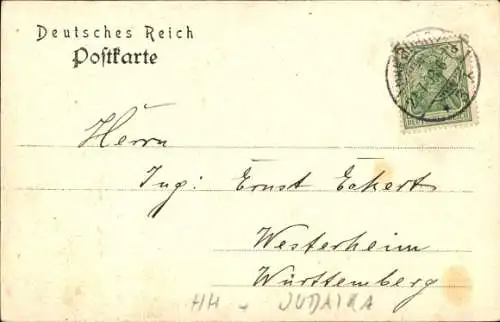 Deutsches Reich
Postkarte
Herrn
Ing: Ernst Eckert
Westerheim
Württemberg
HH - JUDAIKA
DEUTSCHES REICH